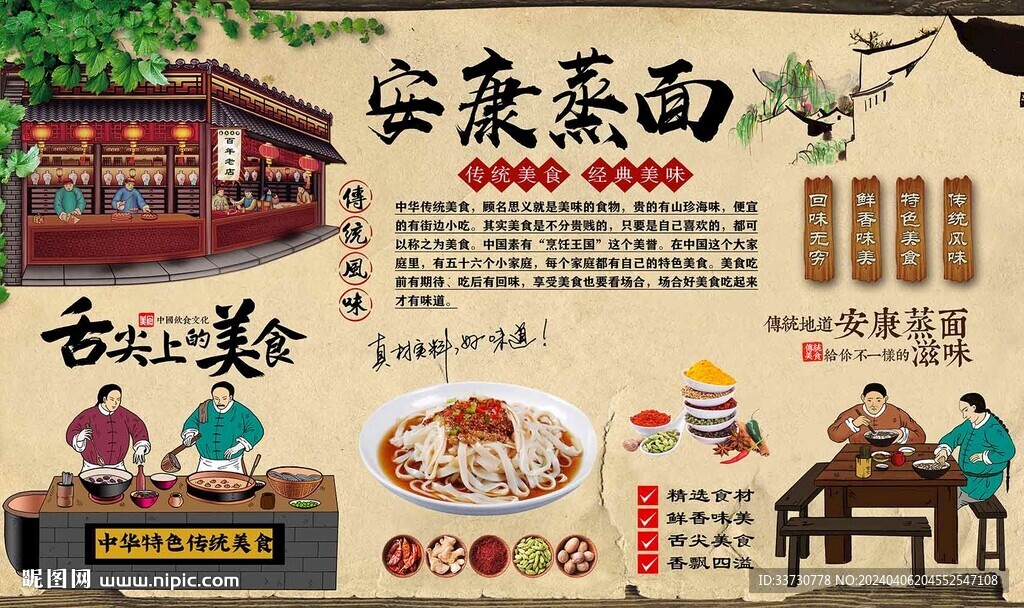 安康蒸面
传统美食 经典美味
百年老店
傳統風味
中华传统美食，顾名思义就是美味的食物，贵的有山珍海味，便宜
的有街边小吃。其实美食是不分贵贱的，只要是自己喜欢的，都可
以称之为美食。中国素有“烹饪王国”这个美誉。在中国这个大家
庭里，有五十六个小家庭，每个家庭都有自己的特色美食。美食吃
前有期待、吃后有回味，享受美食也要看场合，场合好美食吃起来
才有味道。
回味无穷
鲜香味美
特色美食
传统风味
美食 中國飲食文化
舌尖上的美食
真材实料，好味道！
傳統地道安康蒸面
傳統美食 给你不一様的滋味
精选食材
鲜香味美
舌尖美食
香飘四溢
中华特色传统美食
昵图网 www.nipic.com
ID:33730778 NO:20240406204552547108